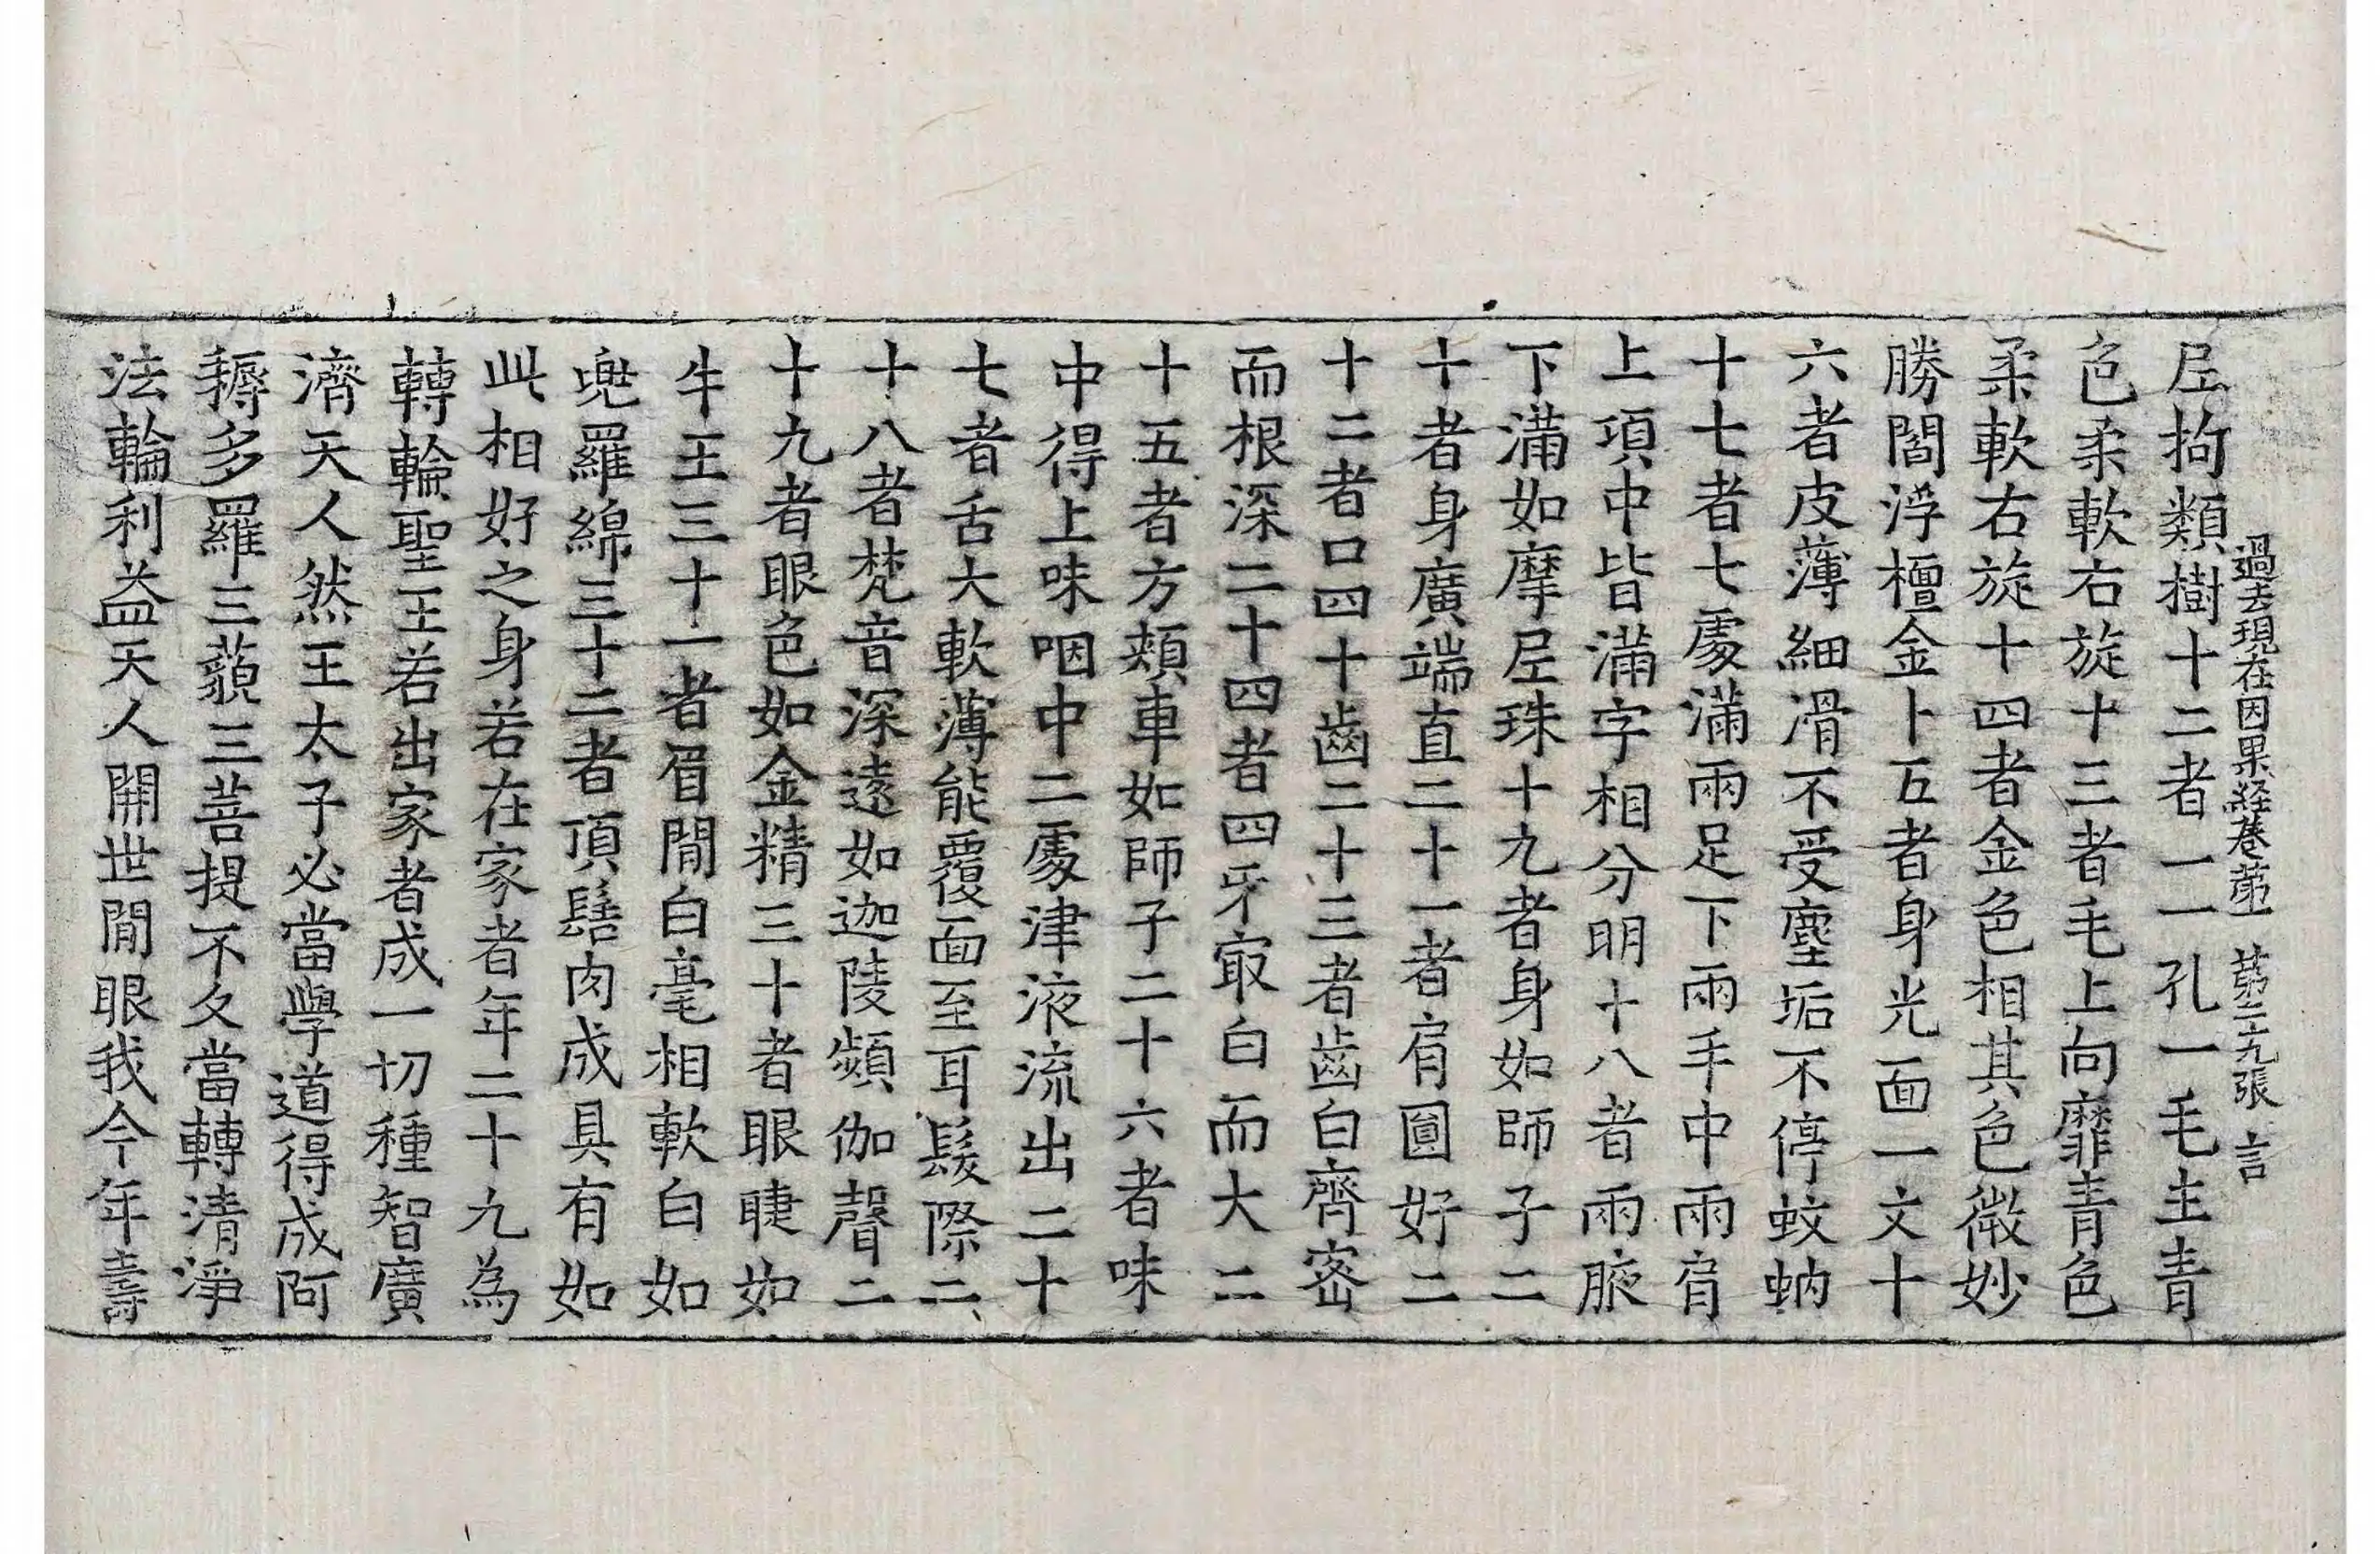 過去現在因果經卷第一 第二九張 言
𡰱拘類樹十二者一一孔一毛生青
色柔軟右旋十三者毛上向靡青色
柔軟右旋十四者金色相其色微妙
勝閻浮檀金十五者身光面一丈十
六者皮薄細滑不受塵垢不停蚊蚋
十七者七處滿兩足下兩手中兩肩
上項中皆滿字相分明十八者兩腋
下滿如摩𡰱珠十九者身如師子二
十者身廣端直二十一者肩圓好二
十二者口四十齒二十三者齒白齊密
而根深二十四者四牙㝡白而大二
十五者方頰車如師子二十六者味
中得上味咽中二處津液流出二十
七者舌大軟薄能覆面至耳髮際二
十八者梵音深遠如迦陵頻伽聲二
十九者眼色如金精三十者眼睫如
牛王三十一者眉間白毫相軟白如
兜羅綿三十二者頂髻肉成具有如
此相好之身若在家者年二十九為
轉輪聖王若出家者成一切種智廣
濟天人然王太子必當學道得成阿
耨多羅三藐三菩提不久當轉清淨
法輪利益天人開世間眼我今年壽